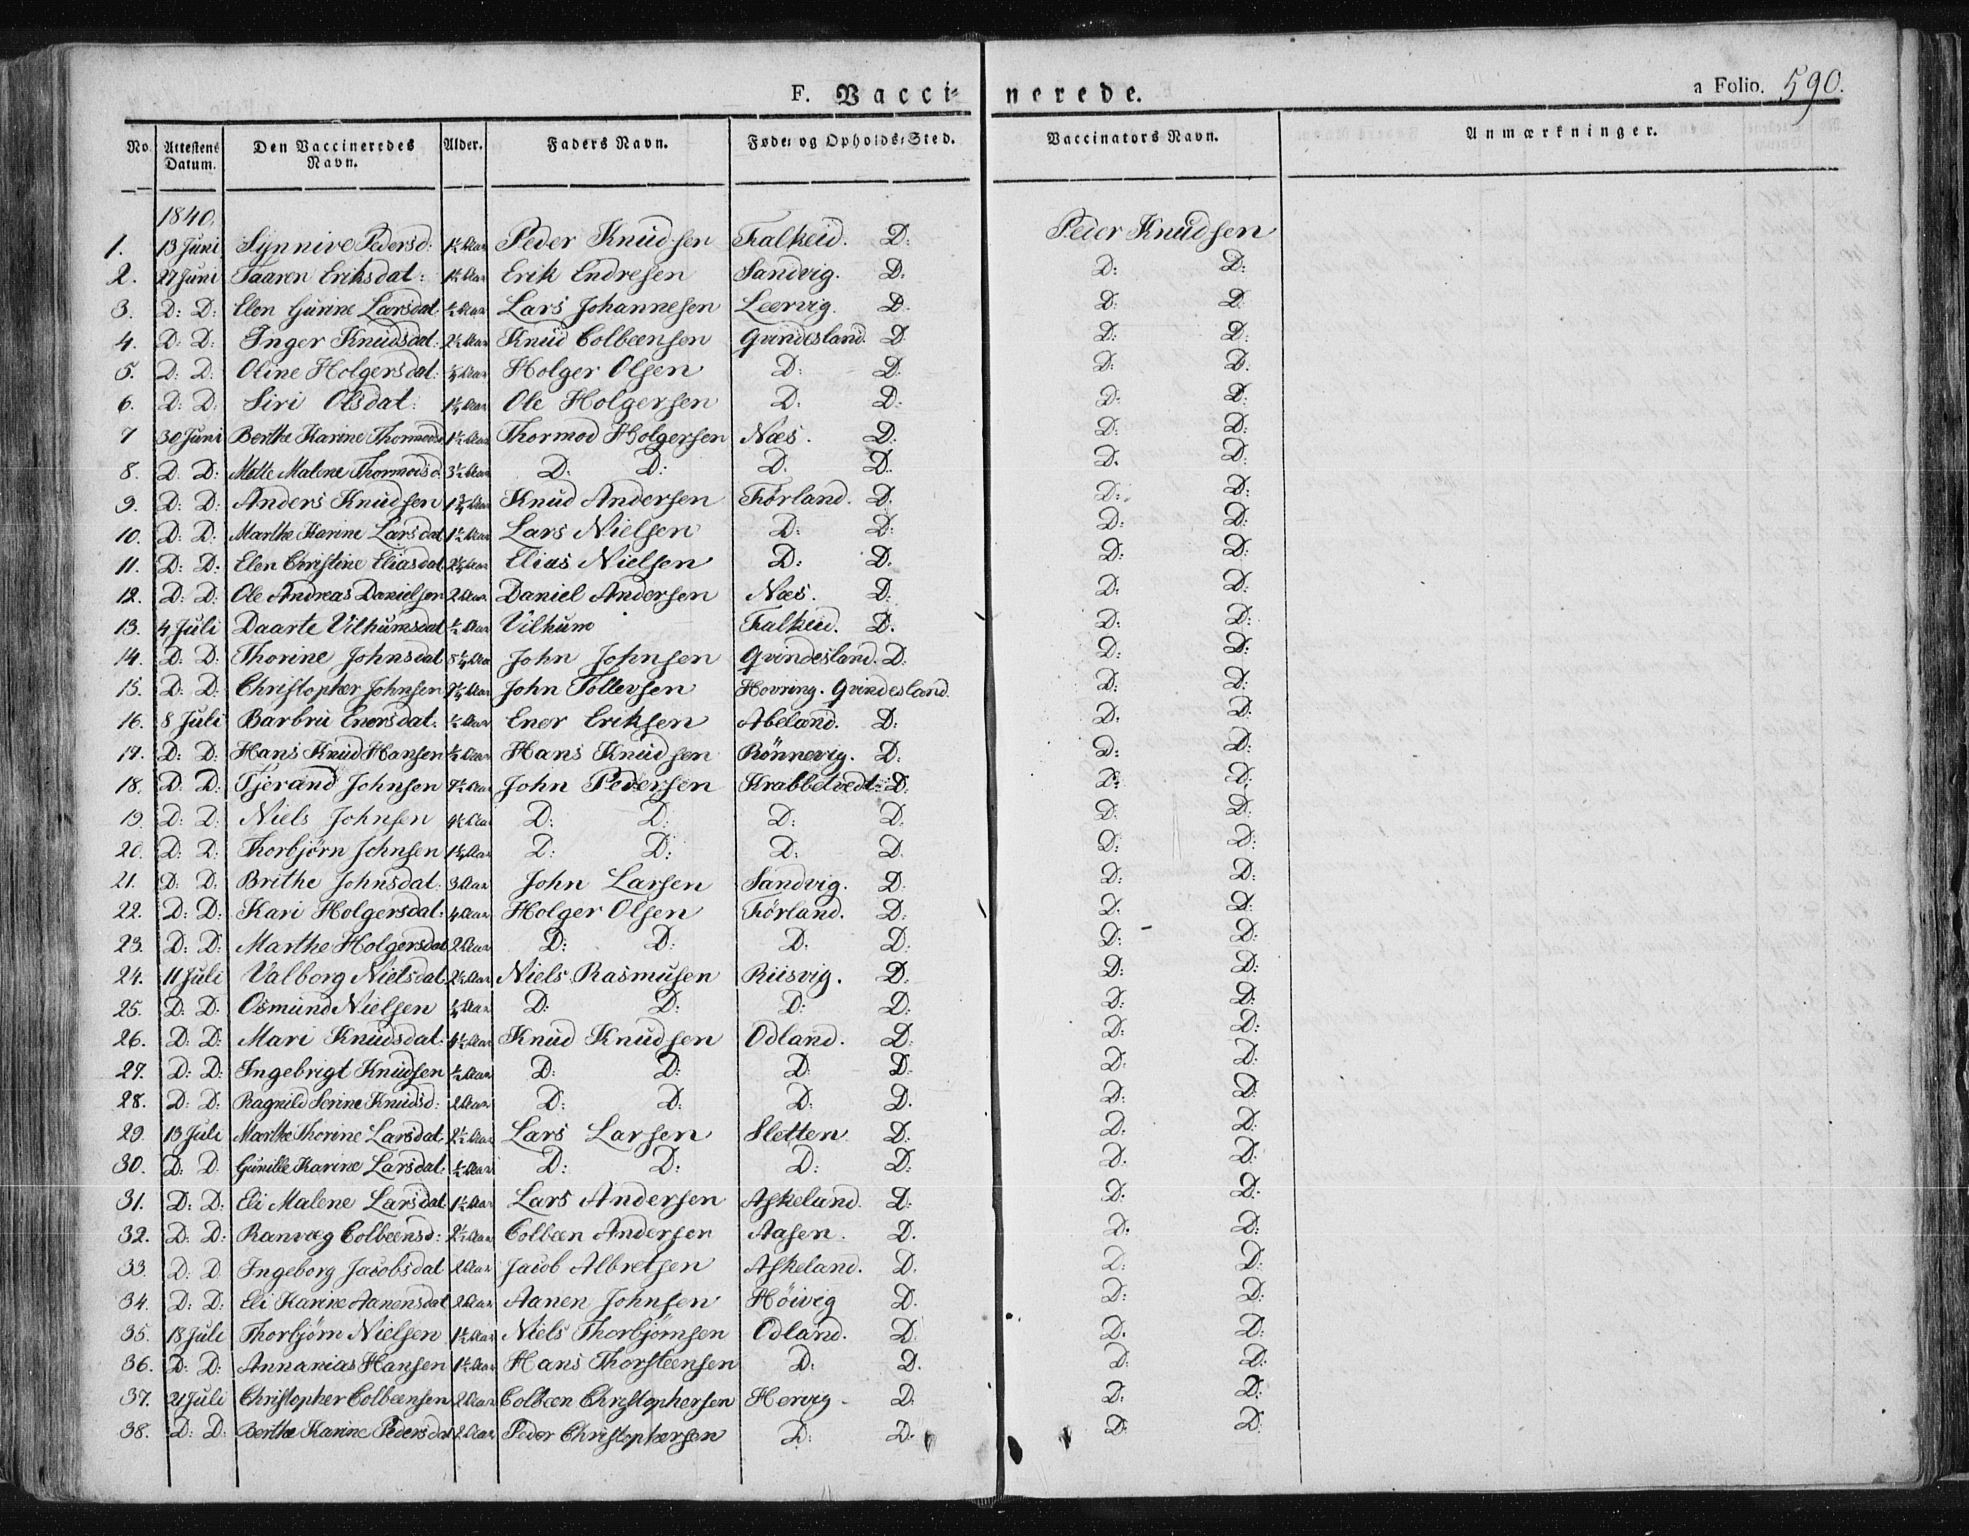 F. Vacci- nerede. a Folio. 590.
No. Attestens Datum. Den Vaccineredes Navn. Alder. Faders Navn. Føde- og Opholds-Sted. Vaccinators Navn. Anmærkninger.
1840.
1. 13 Juni Synnive Pedersd: Aar Peder Knudsen Falkeid. D: Peder Knudsen
2. 27 Juni Taaren Eriksdat: Aar Erik Endresen Sandvig. D: D: D:
3. D: D: Elen Gurine Larsdat. ½ Aar Lars Johannesen Leervig. D. D: D.
4. D: D: Inger Knudsdat: 2½ Aar Knud Colbeensen Qvindesland. D D: D:
5. D: D: Oline Holgersdat: Aar Holger Olsen D: D. D: D.
6. D: D: Siri Olsdat: Aar Ole Holgersen D: D: D: D.
7 30 Juni Berthe Karine Thormodsd 1½ Aar Thormod Holgersen Næs. D. D: D:
8. D: D: Mette Malene Thormodsd. 3½ Aar D: D: D. D. D. D:
9. D: D: Anders Knudsen 1¾ Aar Knud Andersen Førland. D. D: D:
10. D: D: Marthe Karine Larsdat 1½ Aar Lars Nielsen D: D: D: D:
11. D: D: Elen Christine Eliasdat Aar Elias Nielsen D: D. D: D:
12. D: D: Ole Andreas Danielsen 2 Aar Daniel Andersen Næs. D. D: D:
13. 4 Juli Daarte Vilhumsdat ½ Aar Vilhum Falkeid. D. D: D:
14. D: D: Thorine Johnsdat Aar John Johnsen Qvindesland. D: D: D:
15. D: D: Christopher Johnsen Aar John Tollevsen Hovring. Qvindesland. D: D:
16. 8 Juli Barbru Enersdat. ½ Aar Ener Eriksen Abeland. D: D. D:
17. D: D: Hans Knud Hansen Aar Hans Knudsen Rønnevig. D: D: D:
18. D: D: Tjerand Johnsen 7½ Aar John Pedersen Krabbetvedt: D. D: D:
19. D: D: Niels Johnsen Aar D: D: D: D: D: D:
20. D: D: Thorbjørn Johnsen Aar D: D: D: D. D: D:
21. D: D: Brithe Johnsdat: 3 Aar John Larsen Sandvig. D: D: D:
22. D: D: Kari Holgersdat: 4 Aar Holger Olsen Førland. D: D. D:
23. D: D: Marthe Holgersdat 2 Aar D: D: D: D: D: D:
24. 11 Juli Valborg Nielsdat. Aar Niels Rasmusen Riisvig. D: D: D:
25. D: D: Osmund Nielsen Aar D: D: D: D: D: D:
26. D: D: Mari Knudsdat. Aar Knud Knudsen Odland. D: D: D:
27. D: D: Ingebrigt Knudsen ½ Aar D: D: D: D. D: D:
28. D: D: Ragnild Serine Knudsd: 2 Aar D: D: D: D. D: D:
29. 13 Juli Marthe Thorine Larsdat. 2½ Aar Lars Larsen Sletten D: D: D:
30. D: D. Gunille Karine Larsdat. ½ Aar D: D: D: D: D. D:
31. D: D: Eli Malene Larsdat 1½ Aar Lars Andersen Askeland. D. D. D:
32. D: D: Ranvæg Colbeensd: 2½ Aar Colbeen Andersen Aasen. D. D. D:
33. D: D. Ingeborg Jacobsdat 2 Aar Jacob Albretsen Askeland. D. D: D:
34. D: D: Eli Karine Aanensdat 2 Aar Aanen Johnsen Høivig D. D: D:
35. 18 Juli Thorbjørn Nielsen 1½ Aar Niels Thorbjørnsen Odland. D. D. D:
36. D: D: Annanias Hansen 1½ Aar Hans Thorsteensen D: D. D: D:
37. 21 Juli Christopher Colbeensen 2 Aar Colbeen Christophersen Hervig. D. D: D:
38. D: D: Berthe Karine Pedersdat 2 Aar Peder Christophersen D: D. D: D: